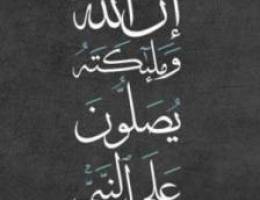 إن الله
وملئكته
يصلون
على النبي